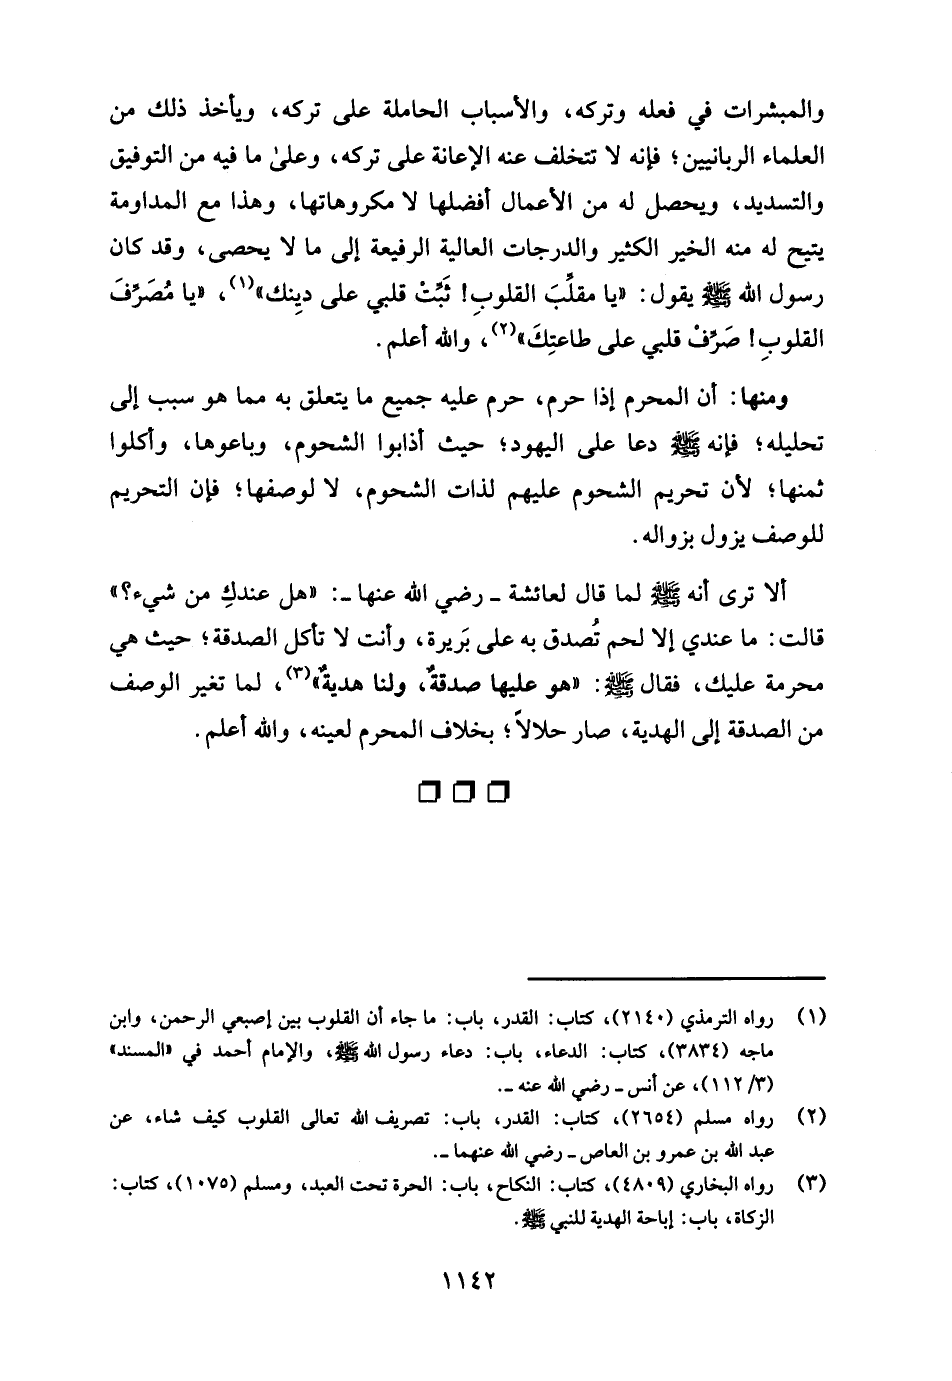 والمبشرات في فعله وتركه، والأسباب الحاملة على تركه، ويأخذ ذلك من
العلماء الربانيين؛ فإنه لا تتخلف عنه الإعانة على تركه، وعلىٰ ما فيه من التوفيق
والتسديد، ويحصل له من الأعمال أفضلها لا مكروهاتها، وهذا مع المداومة
يتيح له منه الخير الكثير والدرجات العالية الرفيعة إلى ما لا يحصى، وقد كان
رسول الله ﷺ يقول: «يا مقلِّبَ القلوبِ! ثَبِّتْ قلبي على دينِك»(١)، «يا مُصَرِّفَ
القلوبِ! صَرِّفْ قلبي على طاعتِكَ»(٢)، والله أعلم.
ومنها: أن المحرم إذا حرم، حرم عليه جميع ما يتعلق به مما هو سبب إلى
تحليله؛ فإنه ﷺ دعا على اليهود؛ حيث أذابوا الشحوم، وباعوها، وأكلوا
ثمنها؛ لأن تحريم الشحوم عليهم لذات الشحوم، لا لوصفها؛ فإن التحريم
للوصف يزول بزواله.
ألا ترى أنه ﷺ لما قال لعائشة ـ رضي الله عنها ـ: «هل عندكِ من شيء؟»
قالت: ما عندي إلا لحم تُصدق به على بَريرة، وأنت لا تأكل الصدقة؛ حيث هي
محرمة عليك، فقال ﷺ: «هو عليها صدقةٌ، ولنا هديةٌ»(٣)، لما تغير الوصف
من الصدقة إلى الهدية، صار حلالاً؛ بخلاف المحرم لعينه، والله أعلم.
(١) رواه الترمذي (٢١٤٠)، كتاب: القدر، باب: ما جاء أن القلوب بين إصبعي الرحمن، وابن
ماجه (٣٨٣٤)، كتاب: الدعاء، باب: دعاء رسول الله ﷺ، والإمام أحمد في «المسند»
(٣/ ١١٢)، عن أنس ـ رضي الله عنه ـ.
(٢) رواه مسلم (٢٦٥٤)، كتاب: القدر، باب: تصريف الله تعالى القلوب كيف شاء، عن
عبد الله بن عمرو بن العاص ـ رضي الله عنهما ـ.
(٣) رواه البخاري (٤٨٠٩)، كتاب: النكاح، باب: الحرة تحت العبد، ومسلم (١٠٧٥)، كتاب:
الزكاة، باب: إباحة الهدية للنبي ﷺ.
١١٤٢